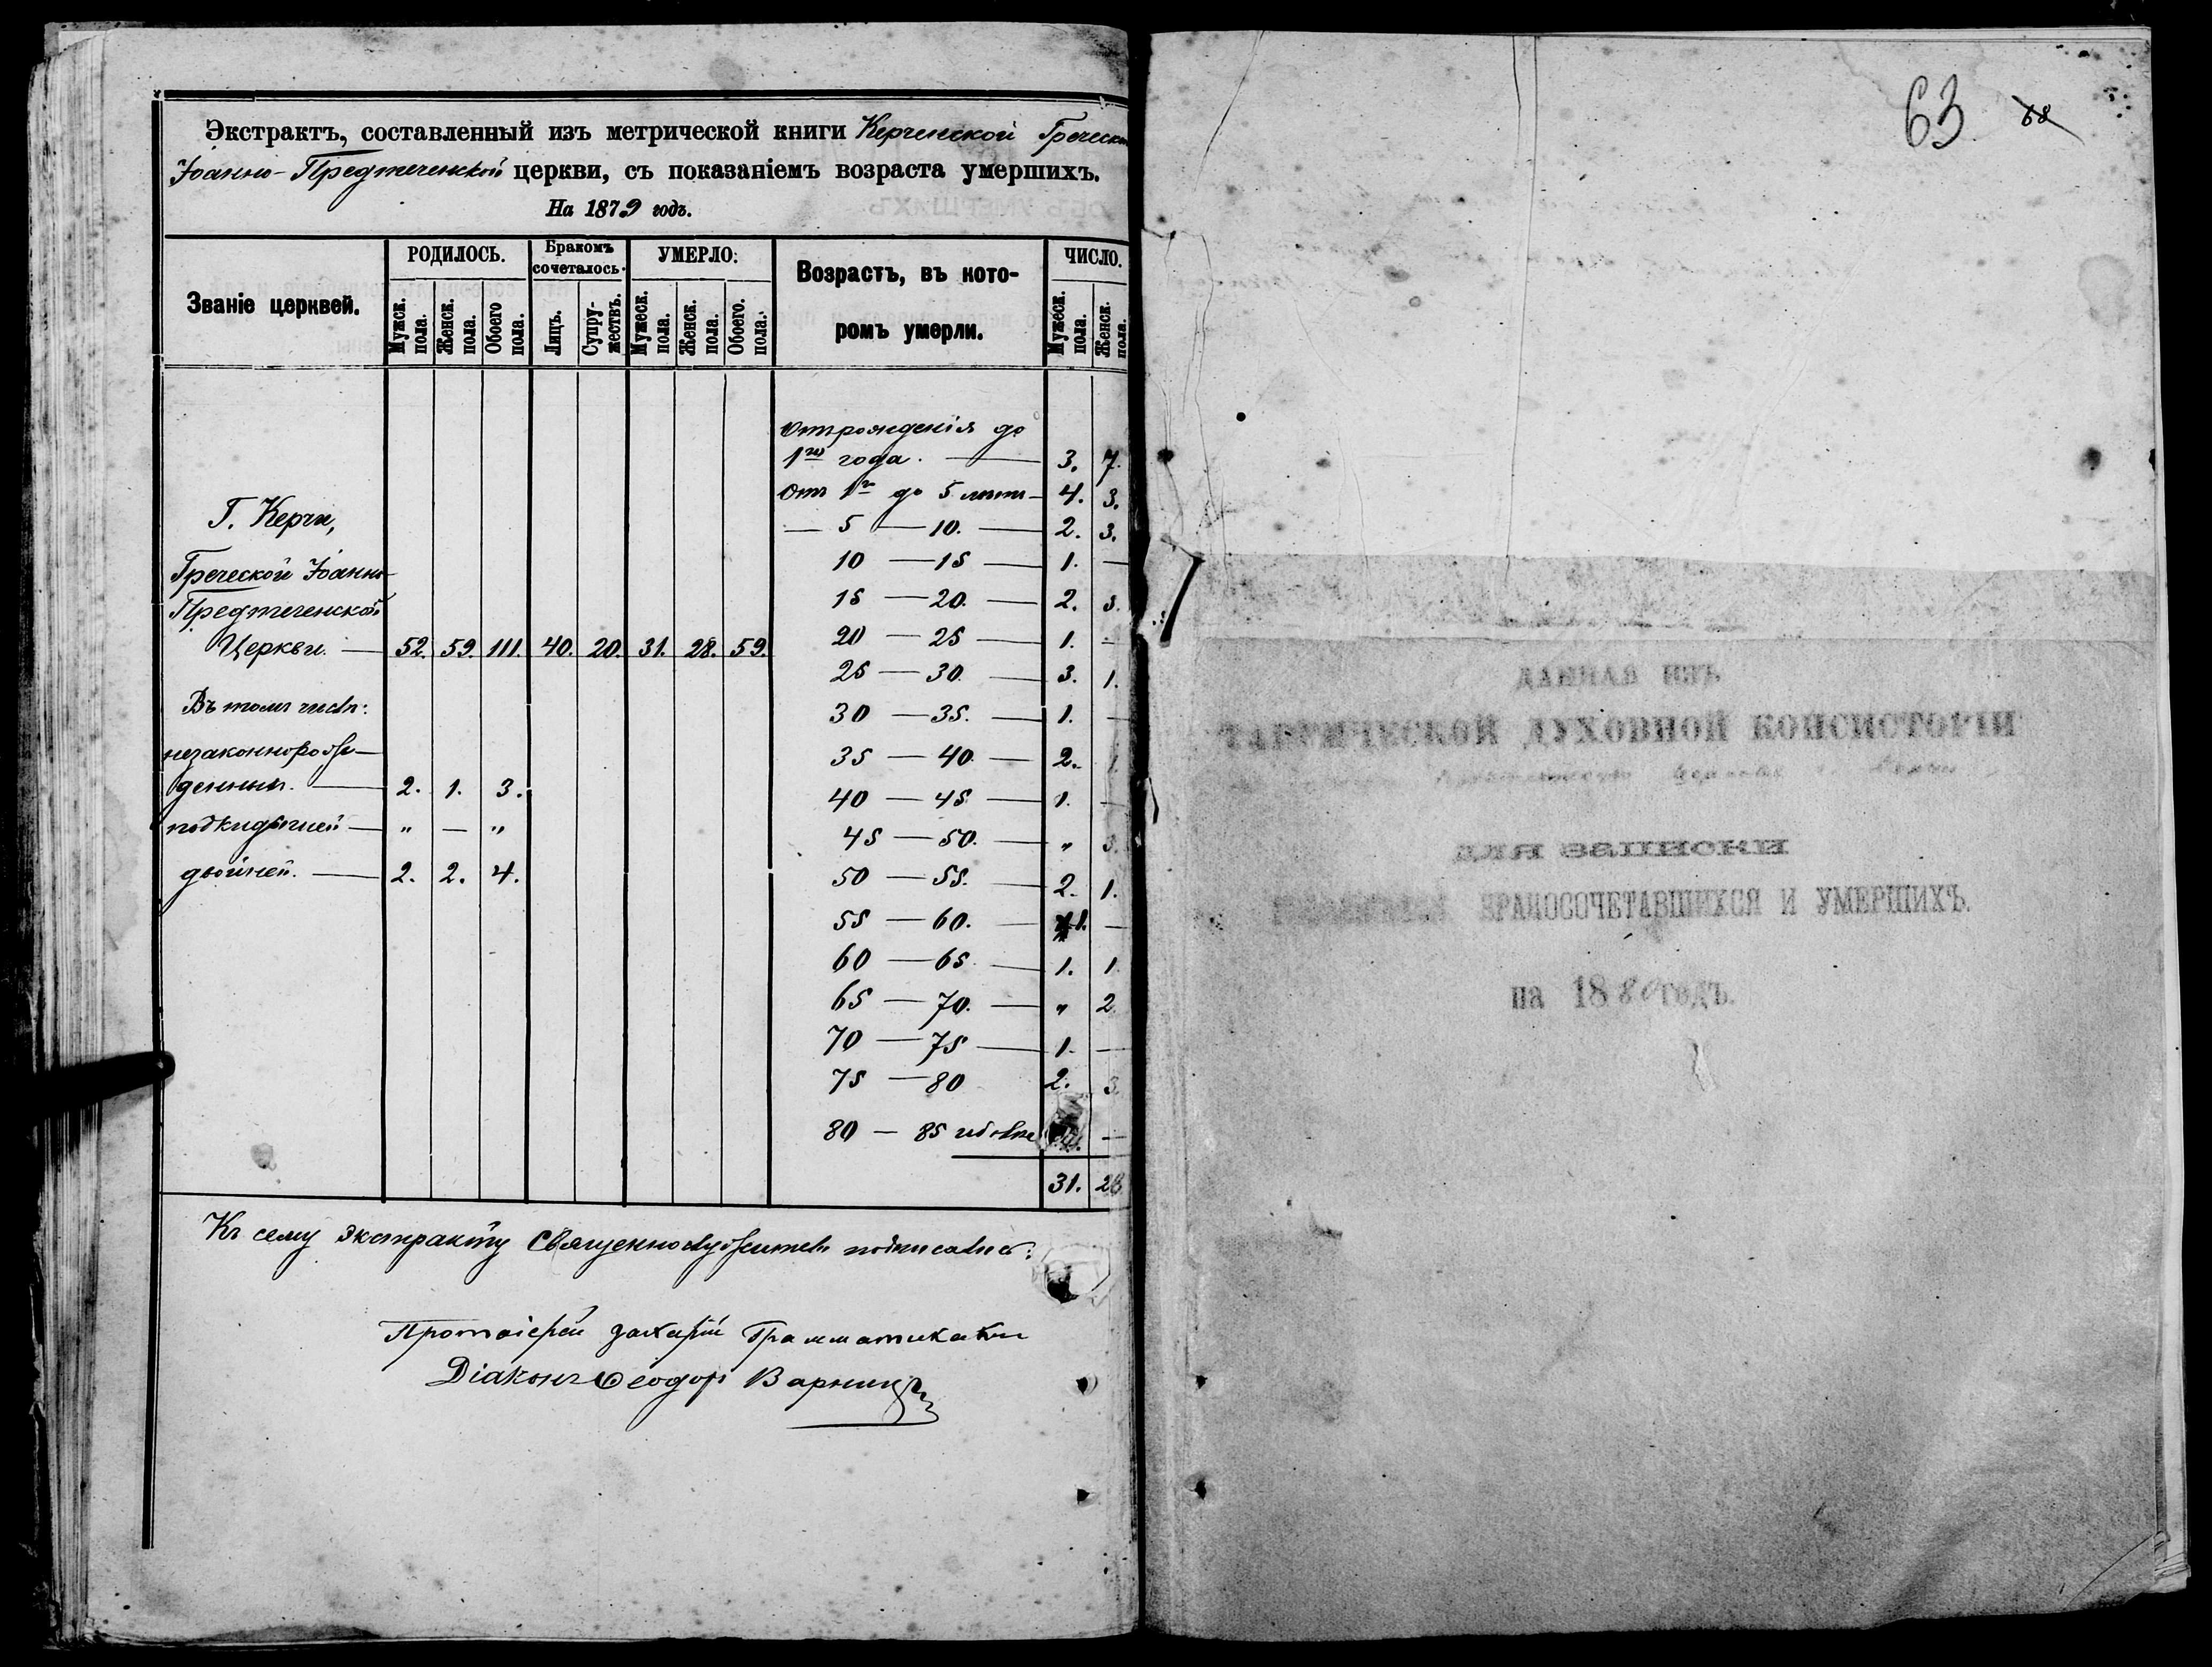 Экстрактъ, составленный изъ метрической книги Керченской Греческой
Іоанно-Предтеченской церкви, съ показаніемъ возраста умершихъ.
На 1879 годъ.
Званіе церквей.
РОДИЛОСЬ.
Бракомъ сочеталось.
УМЕРЛО:
Возрастъ, въ кото-
ромъ умерли.
ЧИСЛО.
Мужск. пола.
Женск. пола.
Обоего пола.
Лицъ.
Супру-
жествъ.
Мужеск. пола.
Женск. пола.
Обоего. пола.
Мужеск. пола.
Женск. пола.
Г. Керчи,
Греческой Іоанно-
Предтеченской
Церкви. — 52. 59. 111. 40. 20. 31. 28. 59.
Въ томъ числѣ:
незаконнорож-
денныхъ. — 2. 1. 3.
подкидышей — „ — „
двойней. — 2. 2. 4.
Отъ рожденія до
1го года. — 3. 7.
Отъ 1го до 5 лѣтъ — 4. 3.
— 5 — 10. — 2. 3.
10 — 15 — 1. —
15 — 20. — 2. 3.
20 — 25 — 1. —
25 — 30. — 3. 1.
30 — 35. — 1. —
35 — 40. — 2. 1.
40 — 45 — 1. —
45 — 50. — „ 3.
50 — 55. — 2. 1.
55 — 60. — 1. —
60 — 65 — 1. 1
65 — 70. — „ 2
70 — 75 — 1. —
75 — 80 2. 3.
80 — 85 и болѣе —
31. 28
Къ сему экстракту Священнослужители подписались:
Протоіерей Захарій Грамматикаки
Діаконъ Ѳеодоръ
63 68
ДАННАЯ ИЗЪ
ТАВРИЧЕСКОЙ ДУХОВНОЙ КОНСИСТОРІИ
для записки
БРАКОСОЧЕТАВШИХСЯ И УМЕРШИХЪ.
на 1880 годъ.